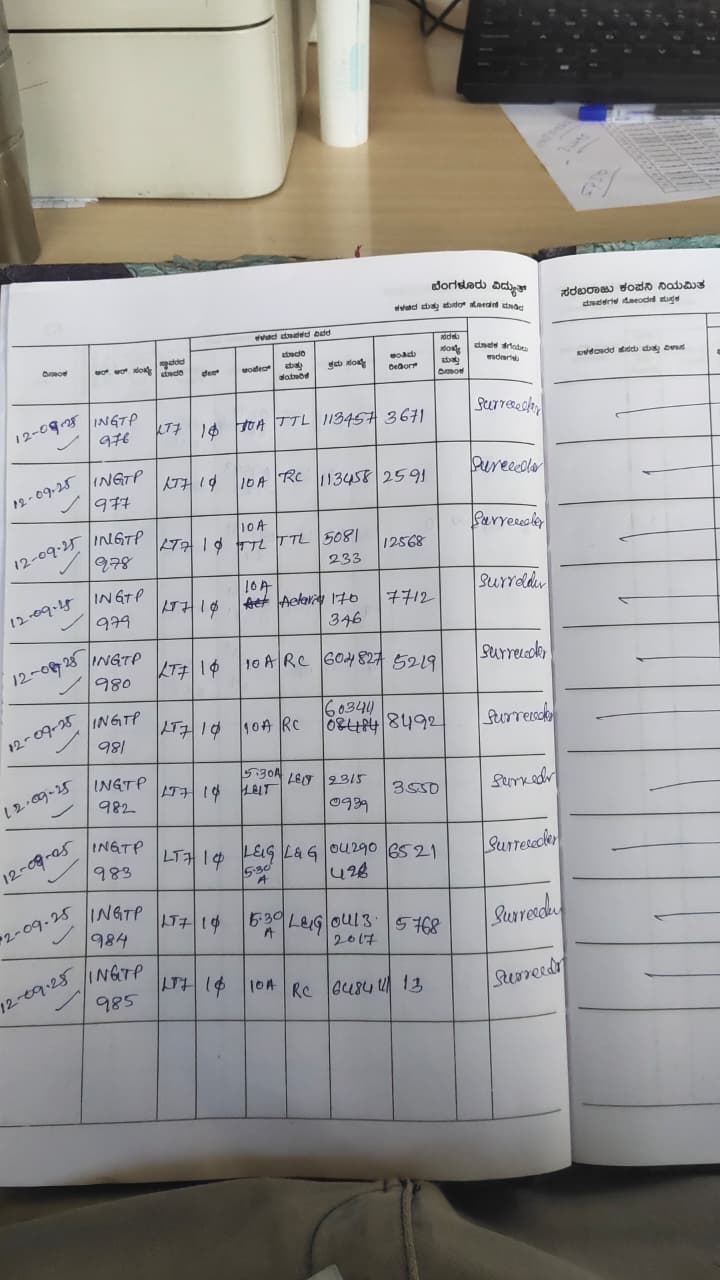 ಬೆಂಗಳೂರು ವಿದ್ಯುತ್ ಸರಬರಾಜು ಕಂಪನಿ ನಿಯಮಿತ
ಕಳಚಿದ ಮತ್ತು ಪುನರ್ ಜೋಡಣೆ ಮಾಡಿದ ಮಾಪಕಗಳ ನೋಂದಣಿ ಪುಸ್ತಕ
ಕಳಚಿದ ಮಾಪಕದ ವಿವರ
ದಿನಾಂಕ ಆರ್ ಆರ್ ಸಂಖ್ಯೆ ಸ್ಥಾವರದ ಮಾದರಿ ಫೇಸ್ ಆಂಪೇರ್ ಮಾದರಿ ಮತ್ತು ತಯಾರಿಕೆ ಕ್ರಮ ಸಂಖ್ಯೆ ಅಂತಿಮ ರೀಡಿಂಗ್ ಸರಕು ಸಂಖ್ಯೆ ಮತ್ತು ದಿನಾಂಕ ಮಾಪಕ ತೆಗೆಯಲು ಕಾರಣಗಳು ಬಳಕೆದಾರರ ಹೆಸರು ಮತ್ತು ವಿಳಾಸ
12-09-25 INGTP 976 LT7 1φ 10A TTL 113457 3671 Surreeder
12-09-25 INGTP 977 LT7 1φ 10A RC 113458 2591 Surreeder
12-09-25 INGTP 978 LT7 1φ 10A TTL TTL 5081 233 12568 Surreeder
12-09-25 INGTP 979 LT7 1φ 10A 170 346 7712
12-09-25 INGTP 980 LT7 1φ 10A RC 604827 5219 Surreeder
12-09-25 INGTP 981 LT7 1φ 10A RC 60344 8492 Surreeder
12-09-25 INGTP 982 LT7 1φ 5.30A 2315 0939 3550
12-09-25 INGTP 983 LT7 1φ L&G 5.30 A L&G 04290 428 6521 Surreeder
12-09-25 INGTP 984 LT7 1φ 5.30 A L&G 0413 2017 5768 Surreeder
12-09-25 INGTP 985 LT7 1φ 10A RC 13